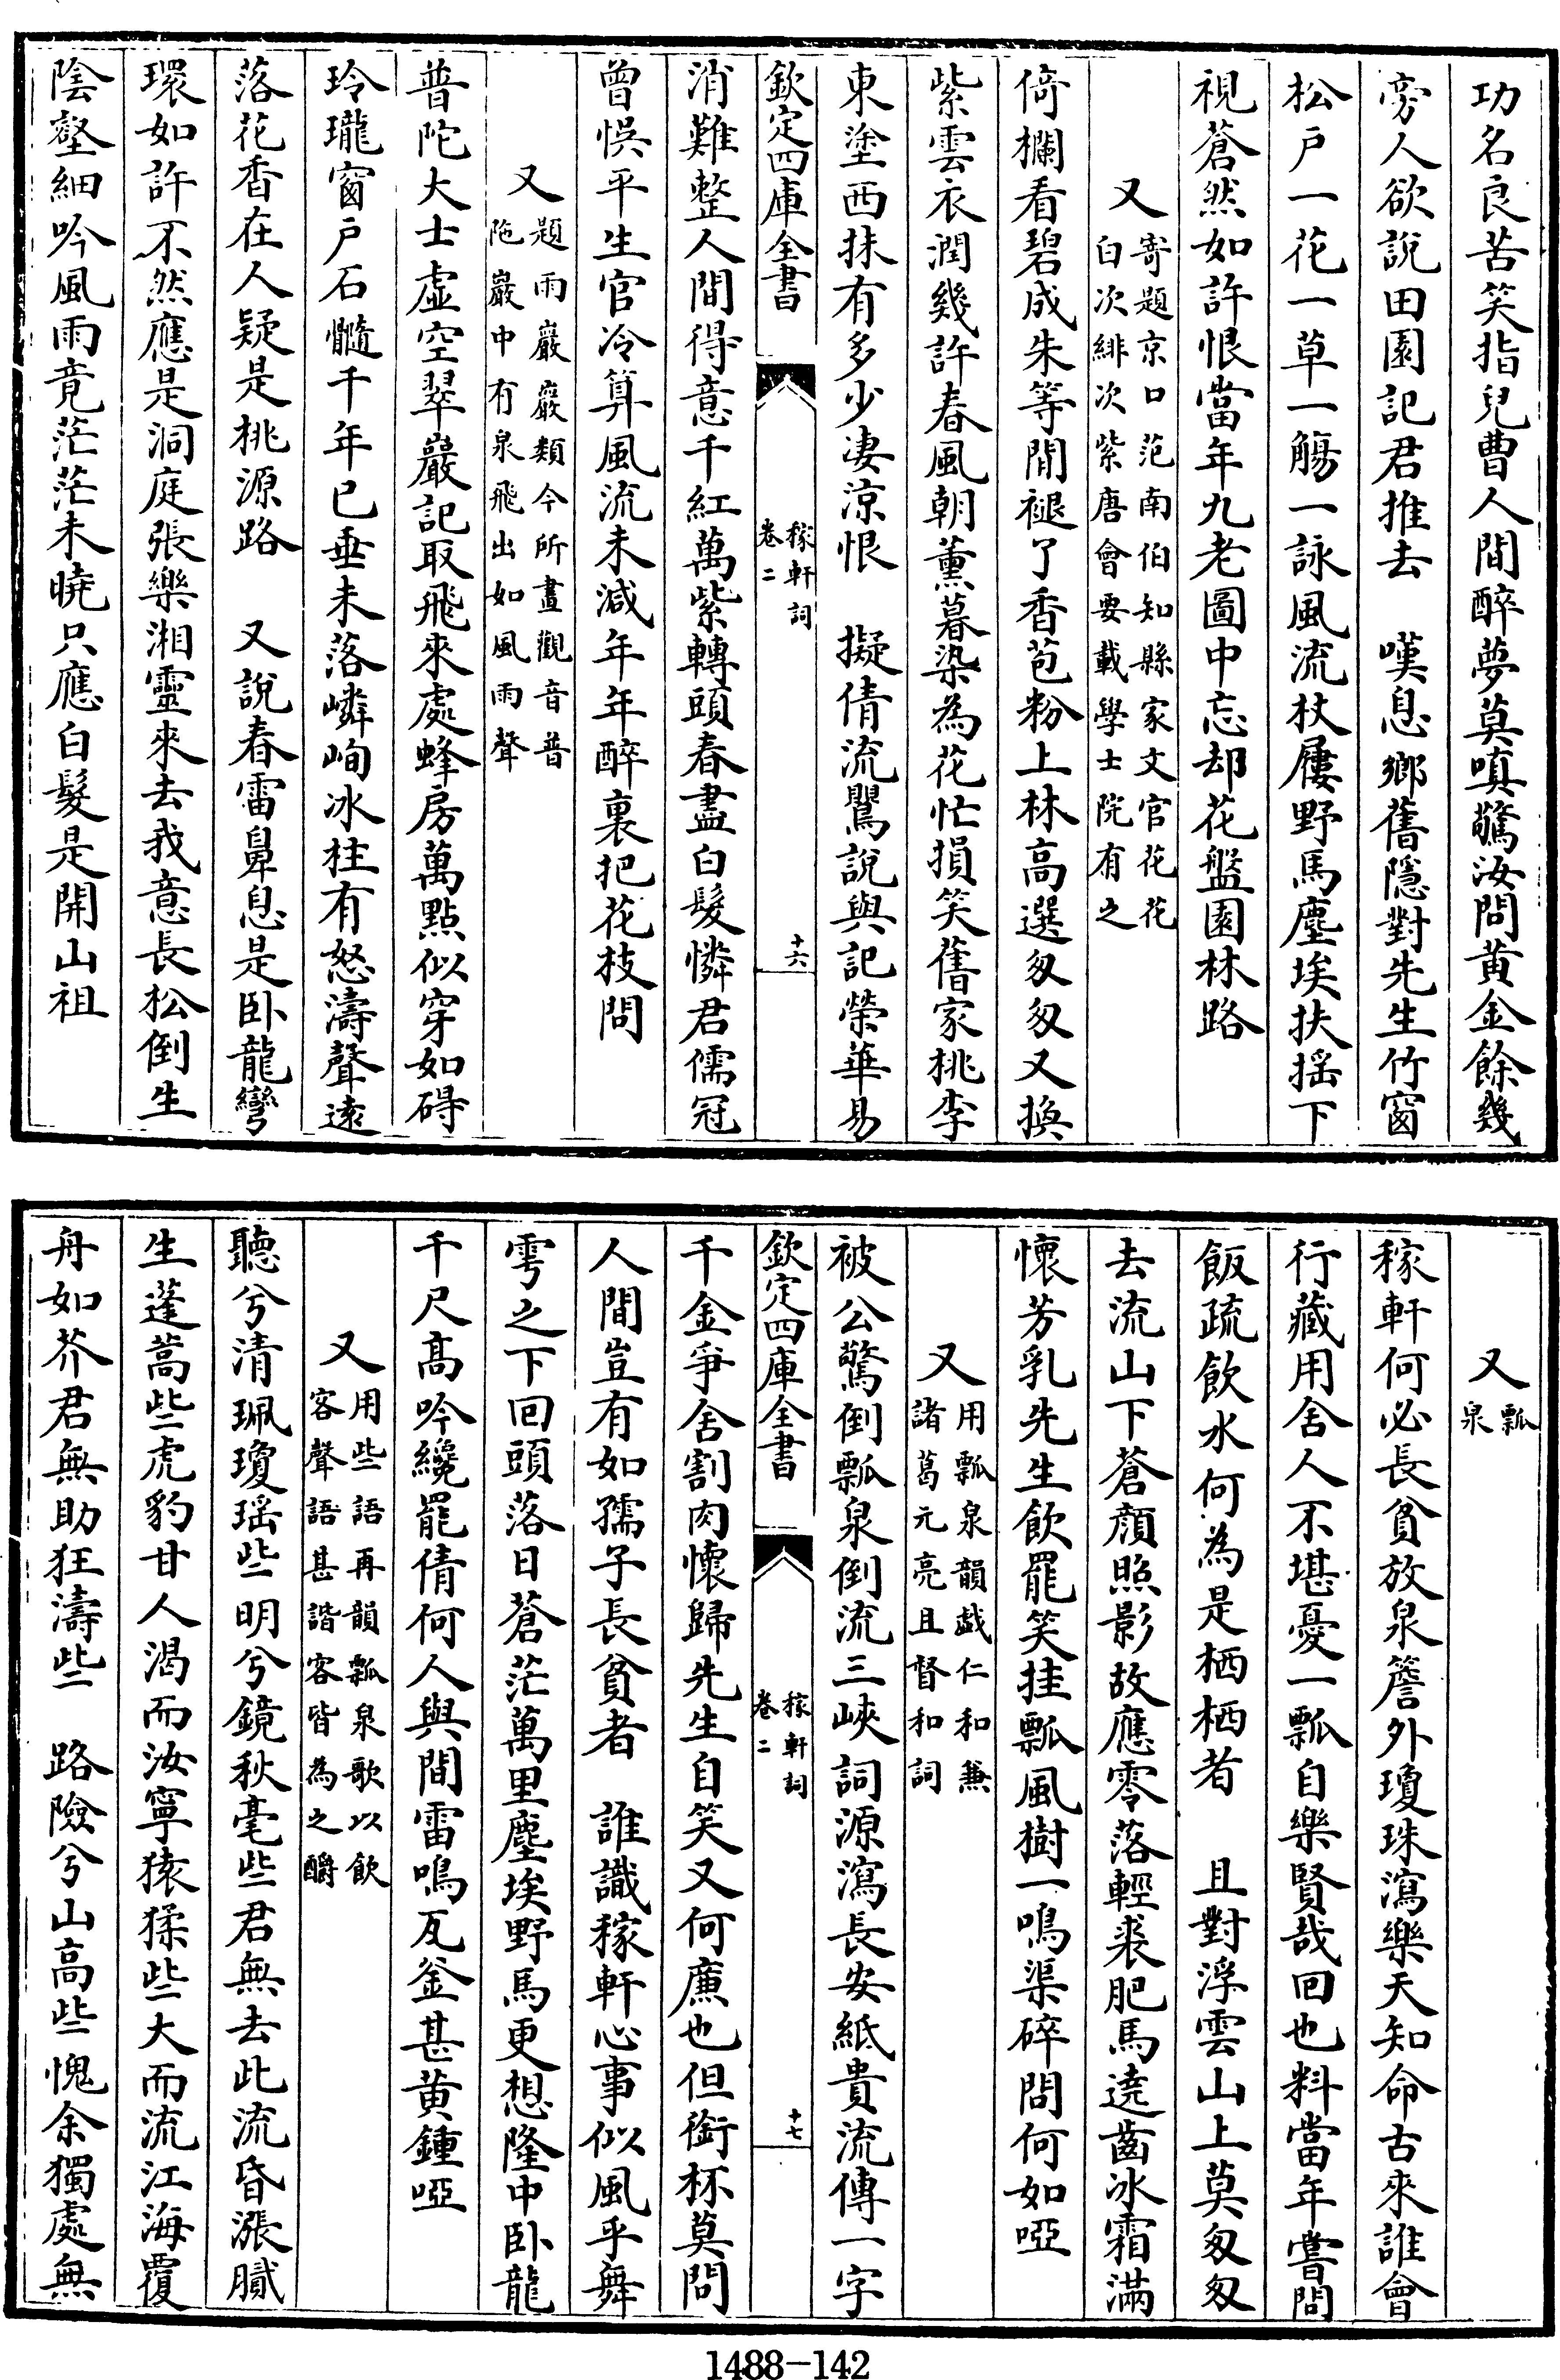 功名良苦笑指兒曹人間醉夢莫嗔驚汝問黄金餘幾
旁人欲說田園記君推去　嘆息鄉舊隱對先生竹窗
松户一花一草一觴一詠風流杖屨野馬塵埃扶摇下
視蒼然如許恨當年九老圖中忘却花盤園林路
又寄題京口范南伯知縣家文官花花
白次緋次紫唐會要載學士院有之
倚欄看碧成朱等閒褪了香苞粉上林高選匆匆又換
紫雲衣潤幾許春風朝薰暮染為花忙損笑舊家桃李
東塗西抹有多少凄凉恨　擬倩流鶯說與記榮華易
欽定四庫全書
稼軒詞
卷二
十六
消難整人間得意千紅萬紫轉頭春盡白髮憐君儒冠
曾悞平生官冷算風流未減年年醉裏把花枝問
又題雨巖巖類今所畫觀音普
陁巖中有泉飛出如風雨聲
普陀大士虛空翠巖記取飛來處蜂房萬點似穿如碍
玲瓏窗户石髓千年已垂未落嶙峋冰柱有怒濤聲遠
落花香在人疑是桃源路　又說春雷鼻息是卧龍彎
環如許不然應是洞庭張樂湘靈來去我意長松倒生
陰壑細吟風雨竟茫茫未曉只應白髮是開山祖
又瓢
泉
稼軒何必長貧放泉簷外瓊珠瀉樂天知命古來誰會
行藏用舍人不堪憂一瓢自樂賢哉回也料當年嘗問
飯疏飲水何為是栖栖者　且對浮雲山上莫匆匆
去流山下蒼顔照影故應零落輕裘肥馬遶齒冰霜滿
懷芳乳先生飲罷笑挂瓢風樹一鳴渠碎問何如啞
又用瓢泉韻戯仁和兼
諸葛元亮且督和詞
被公驚倒瓢泉倒流三峽詞源瀉長安紙貴流傳一字
欽定四庫全書
稼軒詞
卷二
十七
千金爭舍割肉懷歸先生自笑又何廉也但銜杯莫問
人間豈有如孺子長貧者　誰識稼軒心事似風乎舞
雩之下回頭落日蒼茫萬里塵埃野馬更想隆中卧龍
千尺高吟纔罷倩何人與間雷鳴瓦釜甚黄鍾啞
又用些語再韻瓢泉歌以飲
客聲語甚諧客皆為之釂
聽兮清珮瓊瑶些明兮鏡秋毫些君無去此流昏漲膩
生蓬蒿些虎豹甘人渴而汝寧猿猱些大而流江海覆
舟如芥君無助狂濤些　路險兮山高些愧余獨處無
1488-142